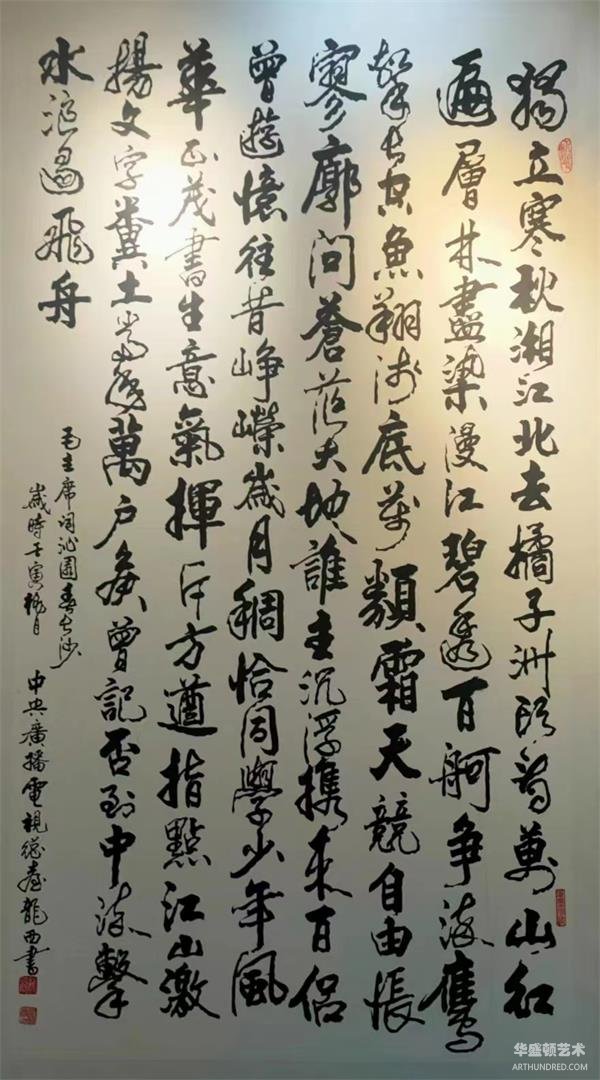 獨立寒秋湘江北去橘子洲頭看萬山紅
遍層林盡染漫江碧透百舸爭流鷹
擊長空魚翔淺底萬類霜天競自由悵
寥廓問蒼茫大地誰主沉浮携來百侶
曾遊憶往昔崢嶸歲月稠恰同學少年風
華正茂書生意氣揮斥方遒指點江山激
揚文字糞土當年萬戶侯曾記否到中流擊
水浪遏飛舟
毛主席词沁園春長沙
歲時壬寅月
中央廣播電視總臺龍西書
华盛顿艺术
ARTHUNDRED.COM